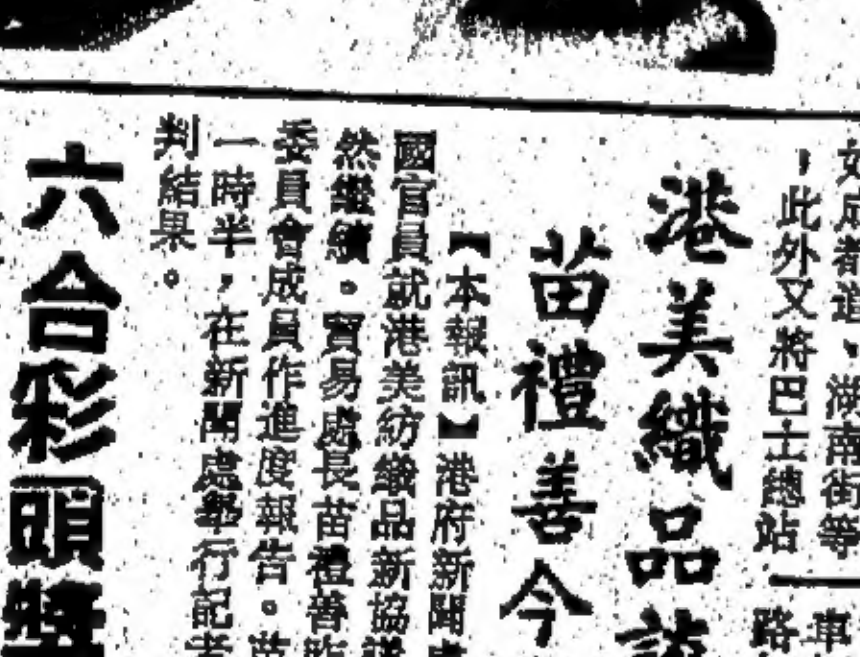 如成都道,湖南街等
,此外又將巴士總站
車
路
港美織品談
苗禮善今
【本報訊】港府新聞處
國官員就港美紡織品新協議
然繼續。貿易處長苗禮善昨
委員會成員作進度報告。苗
一時半,在新聞處舉行記者
判結果。
六合彩頭獎